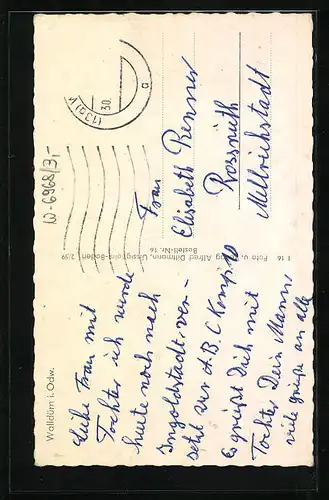 Walldürn i. Odw.
Liebe Frau mit
Tochter ich wurde
heute noch nach
Ingolstadt ver-
setzt zur A.B.C Komp. 10
Es grüßt Dich mit
Tochter Dein Mann,
viele grüße an alle
I 16 Foto u. Verlag Alfred Dittmann, 2/59
Bestell-Nr. 16
W-6968/3,-
(13a) V
30.
a
Frau
Elisabeth Renner
Rossrieth
Mellrichstadt